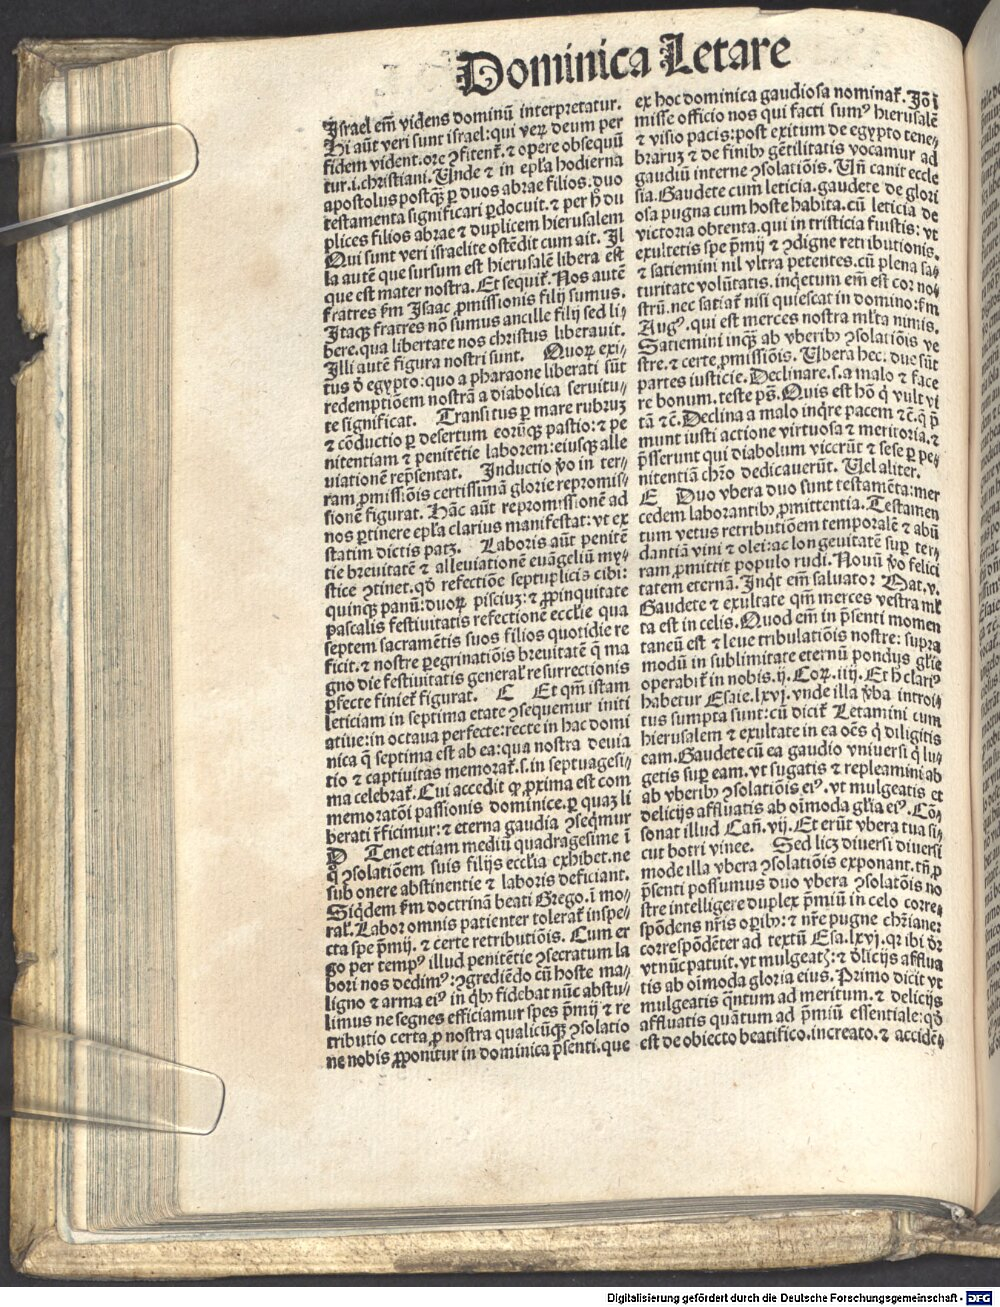 Dominica Letare
Israel em̄ videns dominū interpretatur.
Hi aūt veri sunt israel: qui veꝝ deum per
fidem vident. ore ꝯfitent᷑. ⁊ opere obsequū
tur .i. christiani. Unde ⁊ in epl̄a hodierna
apostolus postqꝫ ꝑ duos abrae filios. duo
testamenta significari ꝑdocuit. ⁊ per hͦ du
plices filios abrae ⁊ duplicem hierusalem
Qui sunt veri israelite ostēdit cum ait. Il
la autē que sursum est hierusalē libera est
que est mater nostra. Et sequit᷑. Nos autē
fratres ẜm Isaac ꝓmissionis filij sumus.
Itaqꝫ fratres nō sumus ancille filij sed li⸗
bere. qua libertate nos christus liberauit.
Illi autē figura nostri sunt. Quoꝝ exi⸗
tus ð egypto: quo a pharaone liberati sūt
redemptiōem nostrā a diabolica seruitu⸗
te significat. Transitus ꝑ mare rubruꝫ
⁊ cōductio ꝑ desertum eorūqꝫ pastio: ⁊ pe
nitentiam ⁊ penitētie laborem: eiusqꝫ alle
uiationē rep̄sentat. Inductio ꝟo in ter⸗
ram ꝓmissiōis certissimā glorie repromis⸗
sionē figurat. Hāc aūt repromissionē ad
nos ꝑtinere epl̄a clarius manifestat: vt ex
statim dictis patꝫ. Laboris aūt penitē
tie breuitatē ⁊ alleuiationē euāgeliū my⸗
stice ꝯtinet. qð refectiōe septuplicis cibi:
quinqꝫ panū: duoꝝ pisciuꝫ: ⁊ ꝓpinquitate
pascalis festiuitatis refectionē eccl̄ie qua
septem sacramētis suos filios quotidie re
ficit. ⁊ nostre ꝑegrinatiōis breuitatē q̄ ma
gno die festiuitatis general᷑ resurrectionis
ꝑfecte finiet᷑ figurat. C Et qm̄ istam
leticiam in septima etate ꝯsequemur initi
atiue: in octaua perfecte: recte in hac domi
nica q̄ septima est ab ea: qua nostra deuia
tio ⁊ captiuitas memorat᷑. s. in septuagesi⸗
ma celebrat᷑. Cui accedit ꝙ ꝓxima est com
memoratōi passionis dominice. ꝑ quaꝫ li
berati r̄ficimur: ⁊ eterna gaudia ꝯseqͥmur
D Tenet etiam mediū quadragesime ī
qͦ ꝯsolatiōem suis filijs eccl̄ia exhibet. ne
sub onere abstinentie ⁊ laboris deficiant.
Siqͥdem ẜm doctrinā beati Grego. ī mo⸗
ral᷑. Labor omnis patienter tolerat᷑ inspe⸗
cta spe p̄mij. ⁊ certe retributiōis. Cum er
go per tempꝰ illud penitētie ꝯsecratum la
bori nos dedimꝰ: ꝯgrediēdo cū hoste ma⸗
ligno ⁊ arma eiꝰ in qͥbꝫ fidebat nūc abstu⸗
limus ne segnes efficiamur spes p̄mij ⁊ re
tributio certa, ꝓ nostra qualicūqꝫ ꝯsolatio
ne nobis ꝓponitur in dominica p̄senti. que
ex hoc dominica gaudiosa nominat᷑. Iō ī
misse officio nos qui facti sumꝰ hierusalē
⁊ visio pacis: post exitum de egypto tene⸗
braruꝫ ⁊ de finibꝫ gētilitatis vocamur ad
gaudiū interne ꝯsolatiōis. Un̄ canit eccle
sia. Gaudete cum leticia. gaudete de glori
osa pugna cum hoste habita. cū leticia de
victoria obtenta. qui in tristicia fuistis: vt
exultetis spe p̄mij ⁊ ꝯdigne retributionis.
⁊ satiemini nil vltra petentes. cū plena sa⸗
turitate volūtatis. inqͥetum em̄ est cor no⸗
strū. nec satiat᷑ nisi quiescat in domino: ẜm
Augꝰ. qui est merces nostra ml̄ta nimis.
Satiemini inqͣꝫ ab vberibꝫ ꝯsolatiōis ve
stre. ⁊ certe ꝓmissiōis. Ubera hec: due sūt
partes iusticie. Declinare. s. a malo ⁊ face
re bonum. teste ps̄. Quis est hō qͥ vult vi
tā ⁊c̄. Declina a malo inqͥre pacem ⁊c̄. q̄ p̄
munt iusti actione virtuosa ⁊ meritoria. ⁊
p̄sserunt qui diabolum vicerūt ⁊ sese ꝑ pe⸗
nitentiā chr̄o dedicauerūt. Vel aliter.
E Duo vbera duo sunt testamēta: mer
cedem laborantibꝫ ꝓmittentia. Testamen
tum vetus retributiōem temporalē ⁊ abū
dantiā vini ⁊ olei: ac longeuitatē suꝑ ter⸗
ram ꝓmittit populo rudi. Nouū ꝟo felici
tatem eternā. Inqͥt em̄ saluator Mat. v.
Gaudete ⁊ exultate qm̄ merces vestra ml̄
ta est in celis. Quod em̄ in p̄senti momen
taneū est ⁊ leue tribulatiōis nostre: supra
modū in sublimitate eternū pondus gl̄ie
operabit᷑ in nobis. ij. Coꝝ. iiij. Et hͨ clariꝰ
habetur Esaie. lxvj. vnde illa ꝟba introi⸗
tus sumpta sunt: cū dicit᷑ Letamini cum
hierusalem ⁊ exultate in ea oēs qͥ diligitis
eam. Gaudete cū ea gaudio vniuersi qͥ lu⸗
getis suꝑ eam. vt sugatis ⁊ repleamini ab
ab vberibꝫ ꝯsolatiōis eiꝰ. vt mulgeatis et
delicijs affluatis ab oīmoda gl̄ia eiꝰ. Cō⸗
sonat illud Can̄. vij. Et erūt vbera tua si⸗
cut botri vinee. Sed licꝫ diuersi diuersi
mode illa vbera ꝯsolatiōis exponant. tn̄ ꝓ
p̄senti possumus duo vbera ꝯsolatōis no
stre intelligere duplex p̄miū in celo corre⸗
spōdens nr̄is oꝑibꝫ: ⁊ nr̄e pugne chr̄iane:
correspōdēter ad textū Esa. lxvj. qꝛ ibi ðr
vt nūc patuit. vt mulgeatꝭ: ⁊ ðlicijs afflua
tis ab oīmoda gloria eius. Primo dicit vt
mulgeatis qͣntum ad meritum. ⁊ delicijs
affluatis quātum ad p̄miū essentiale: qð
est de obiecto beatifico. increato. ⁊ accidē⸗
Digitalisierung gefördert durch die Deutsche Forschungsgemeinschaft - DFG